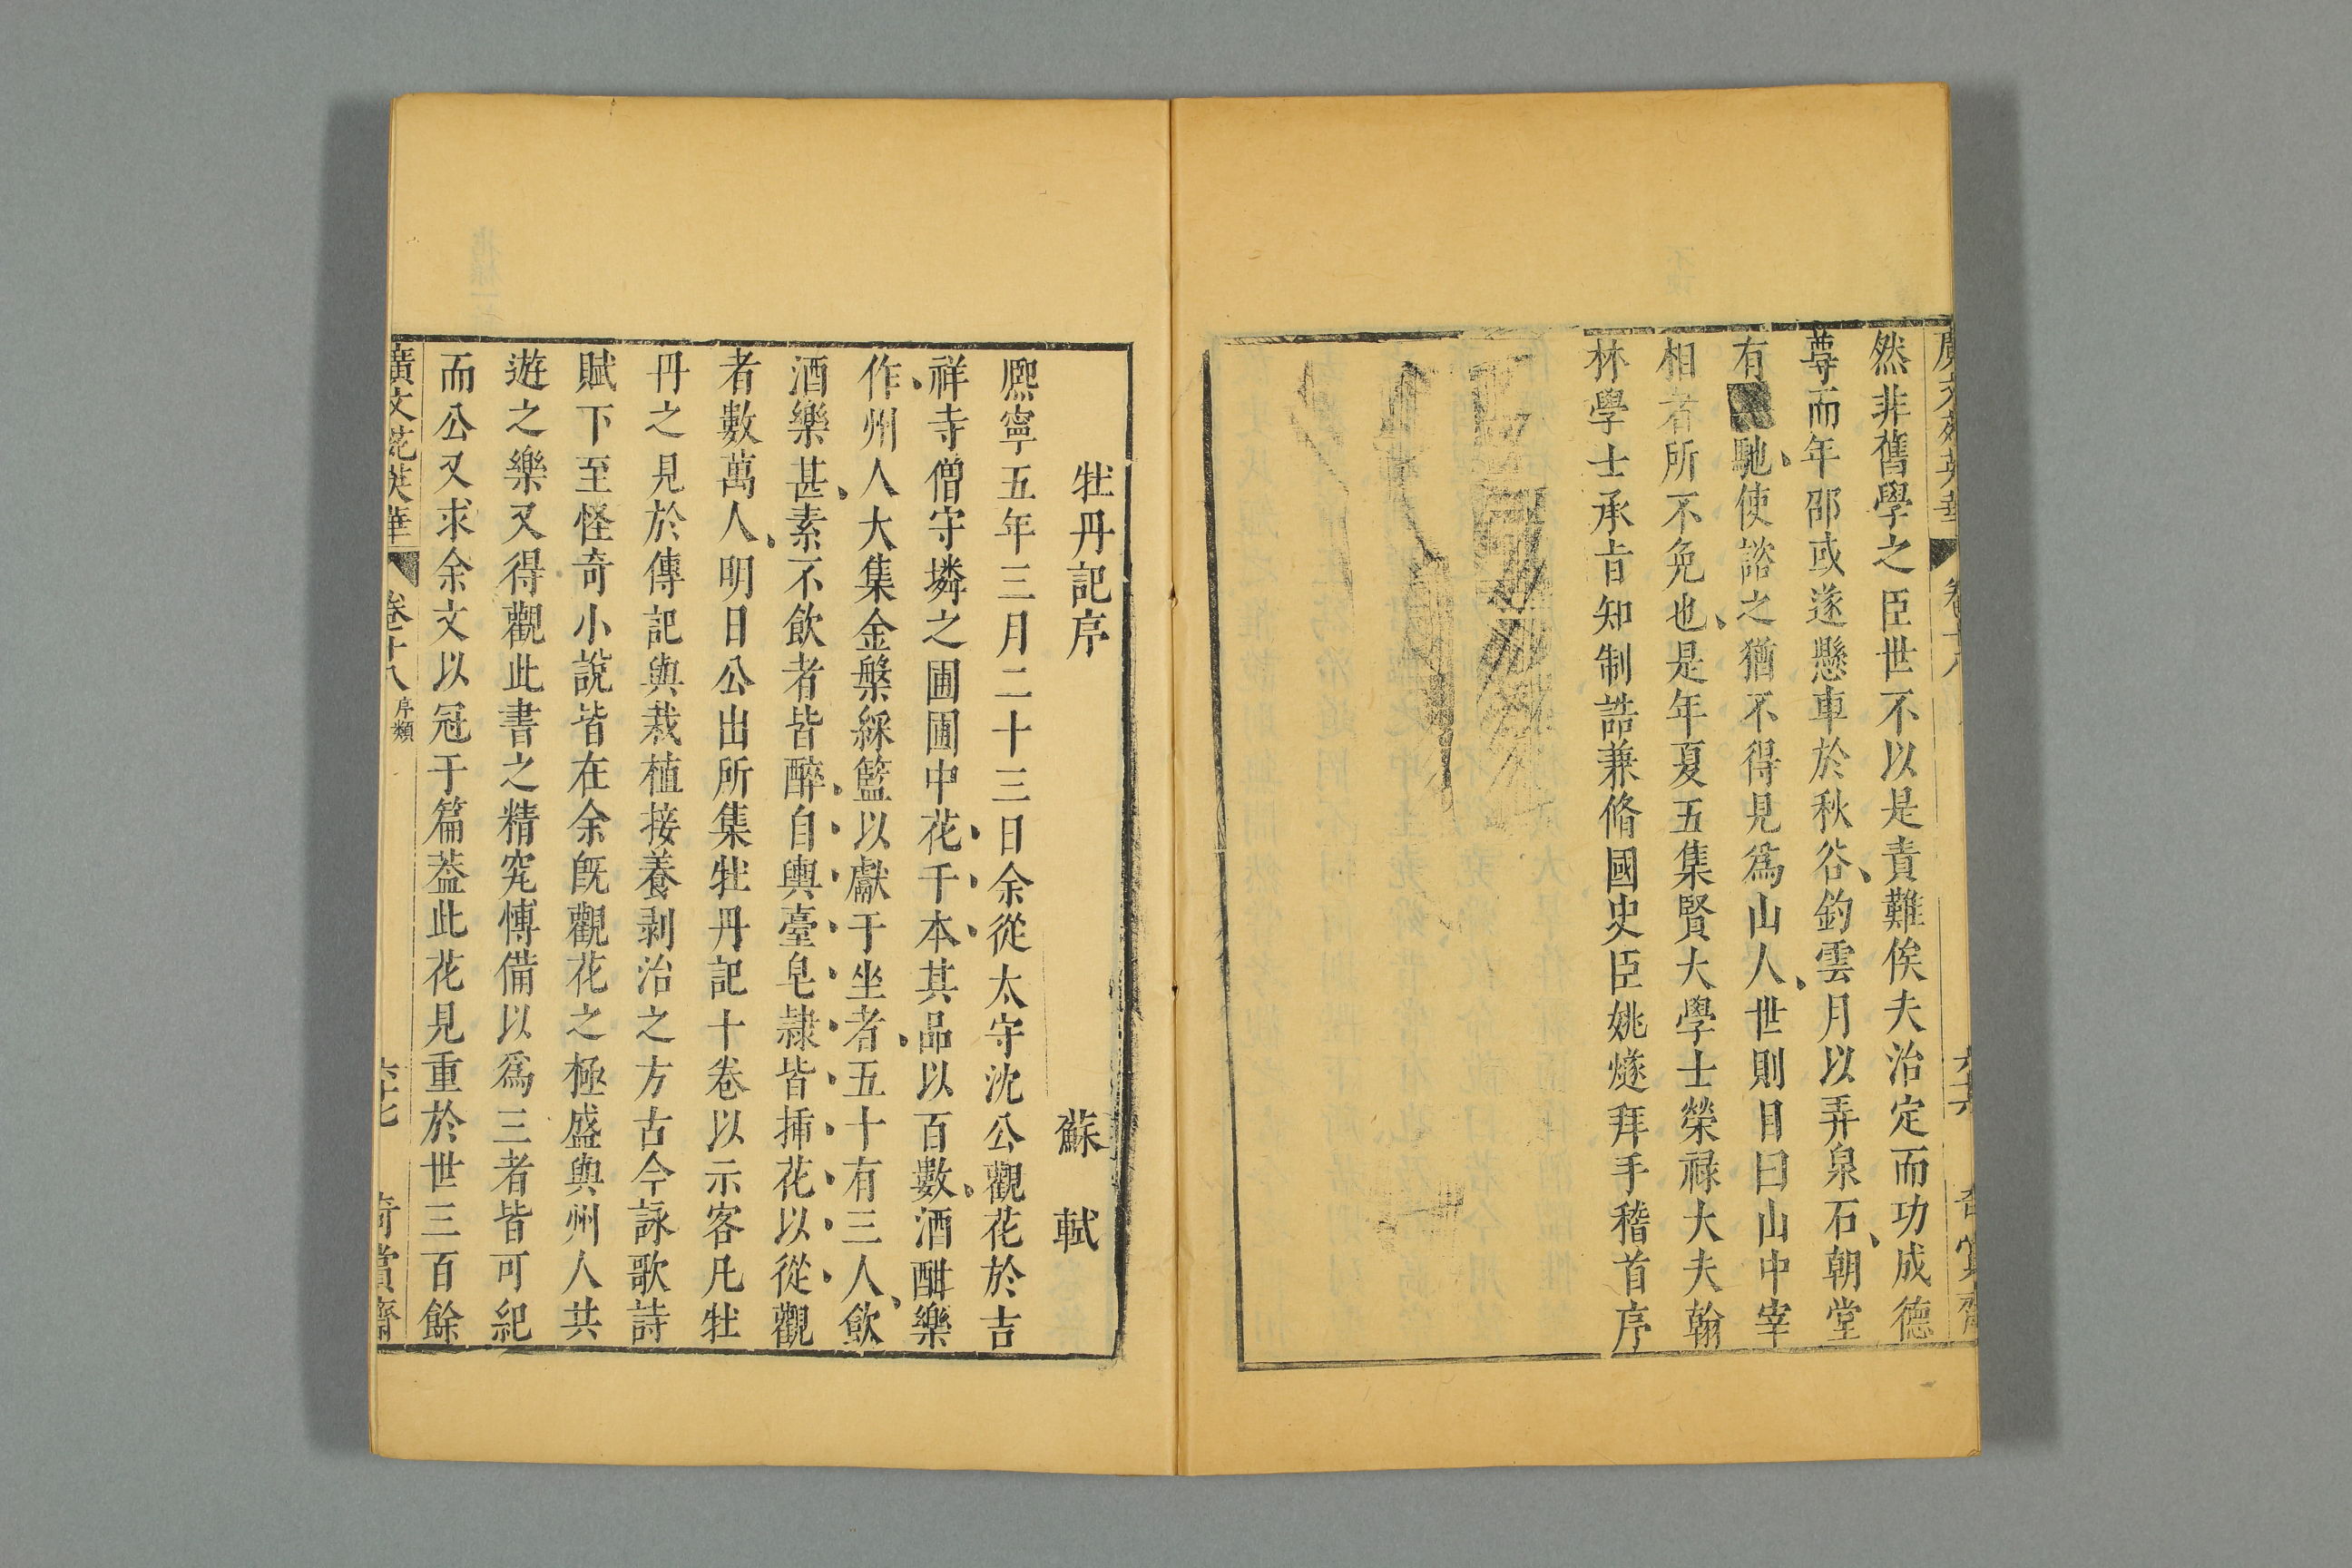 然非舊學之臣世不以是責難俟夫治定而功成德
尊而年邵或遂懸車於秋谷釣雲月以弄泉石朝堂
有馳使諮之猶不得見爲山人世則目曰山中宰
相者所不免也是年夏五集賢大學士榮祿大夫翰
林學士承旨知制誥兼脩國史臣姚燧拜手稽首序
牡丹記序
蘇軾
熈寧五年三月二十三日余從太守沈公觀花於吉
祥寺僧守璘之圃圃中花千本其品以百數酒酣樂
作州人大集金槃綵籃以獻于坐者五十有三人飲
酒樂甚素不飲者皆醉自輿臺皂隷皆揷花以從觀
者數萬人明日公出所集牡丹記十卷以示客凡牡
丹之見於傳記與栽植接養剥治之方古今詠歌詩
賦下至怪奇小說皆在余旣觀花之極盛與州人共
遊之樂又得觀此書之精究慱備以爲三者皆可紀
而公又求余文以冠于篇葢此花見重於世三百餘
廣文苑英華 卷十八 序類 六十七 奇賞齋